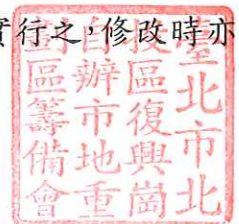 實行之，修改時亦
臺北市北
投區復興崗
自辦市地重
劃區籌備會